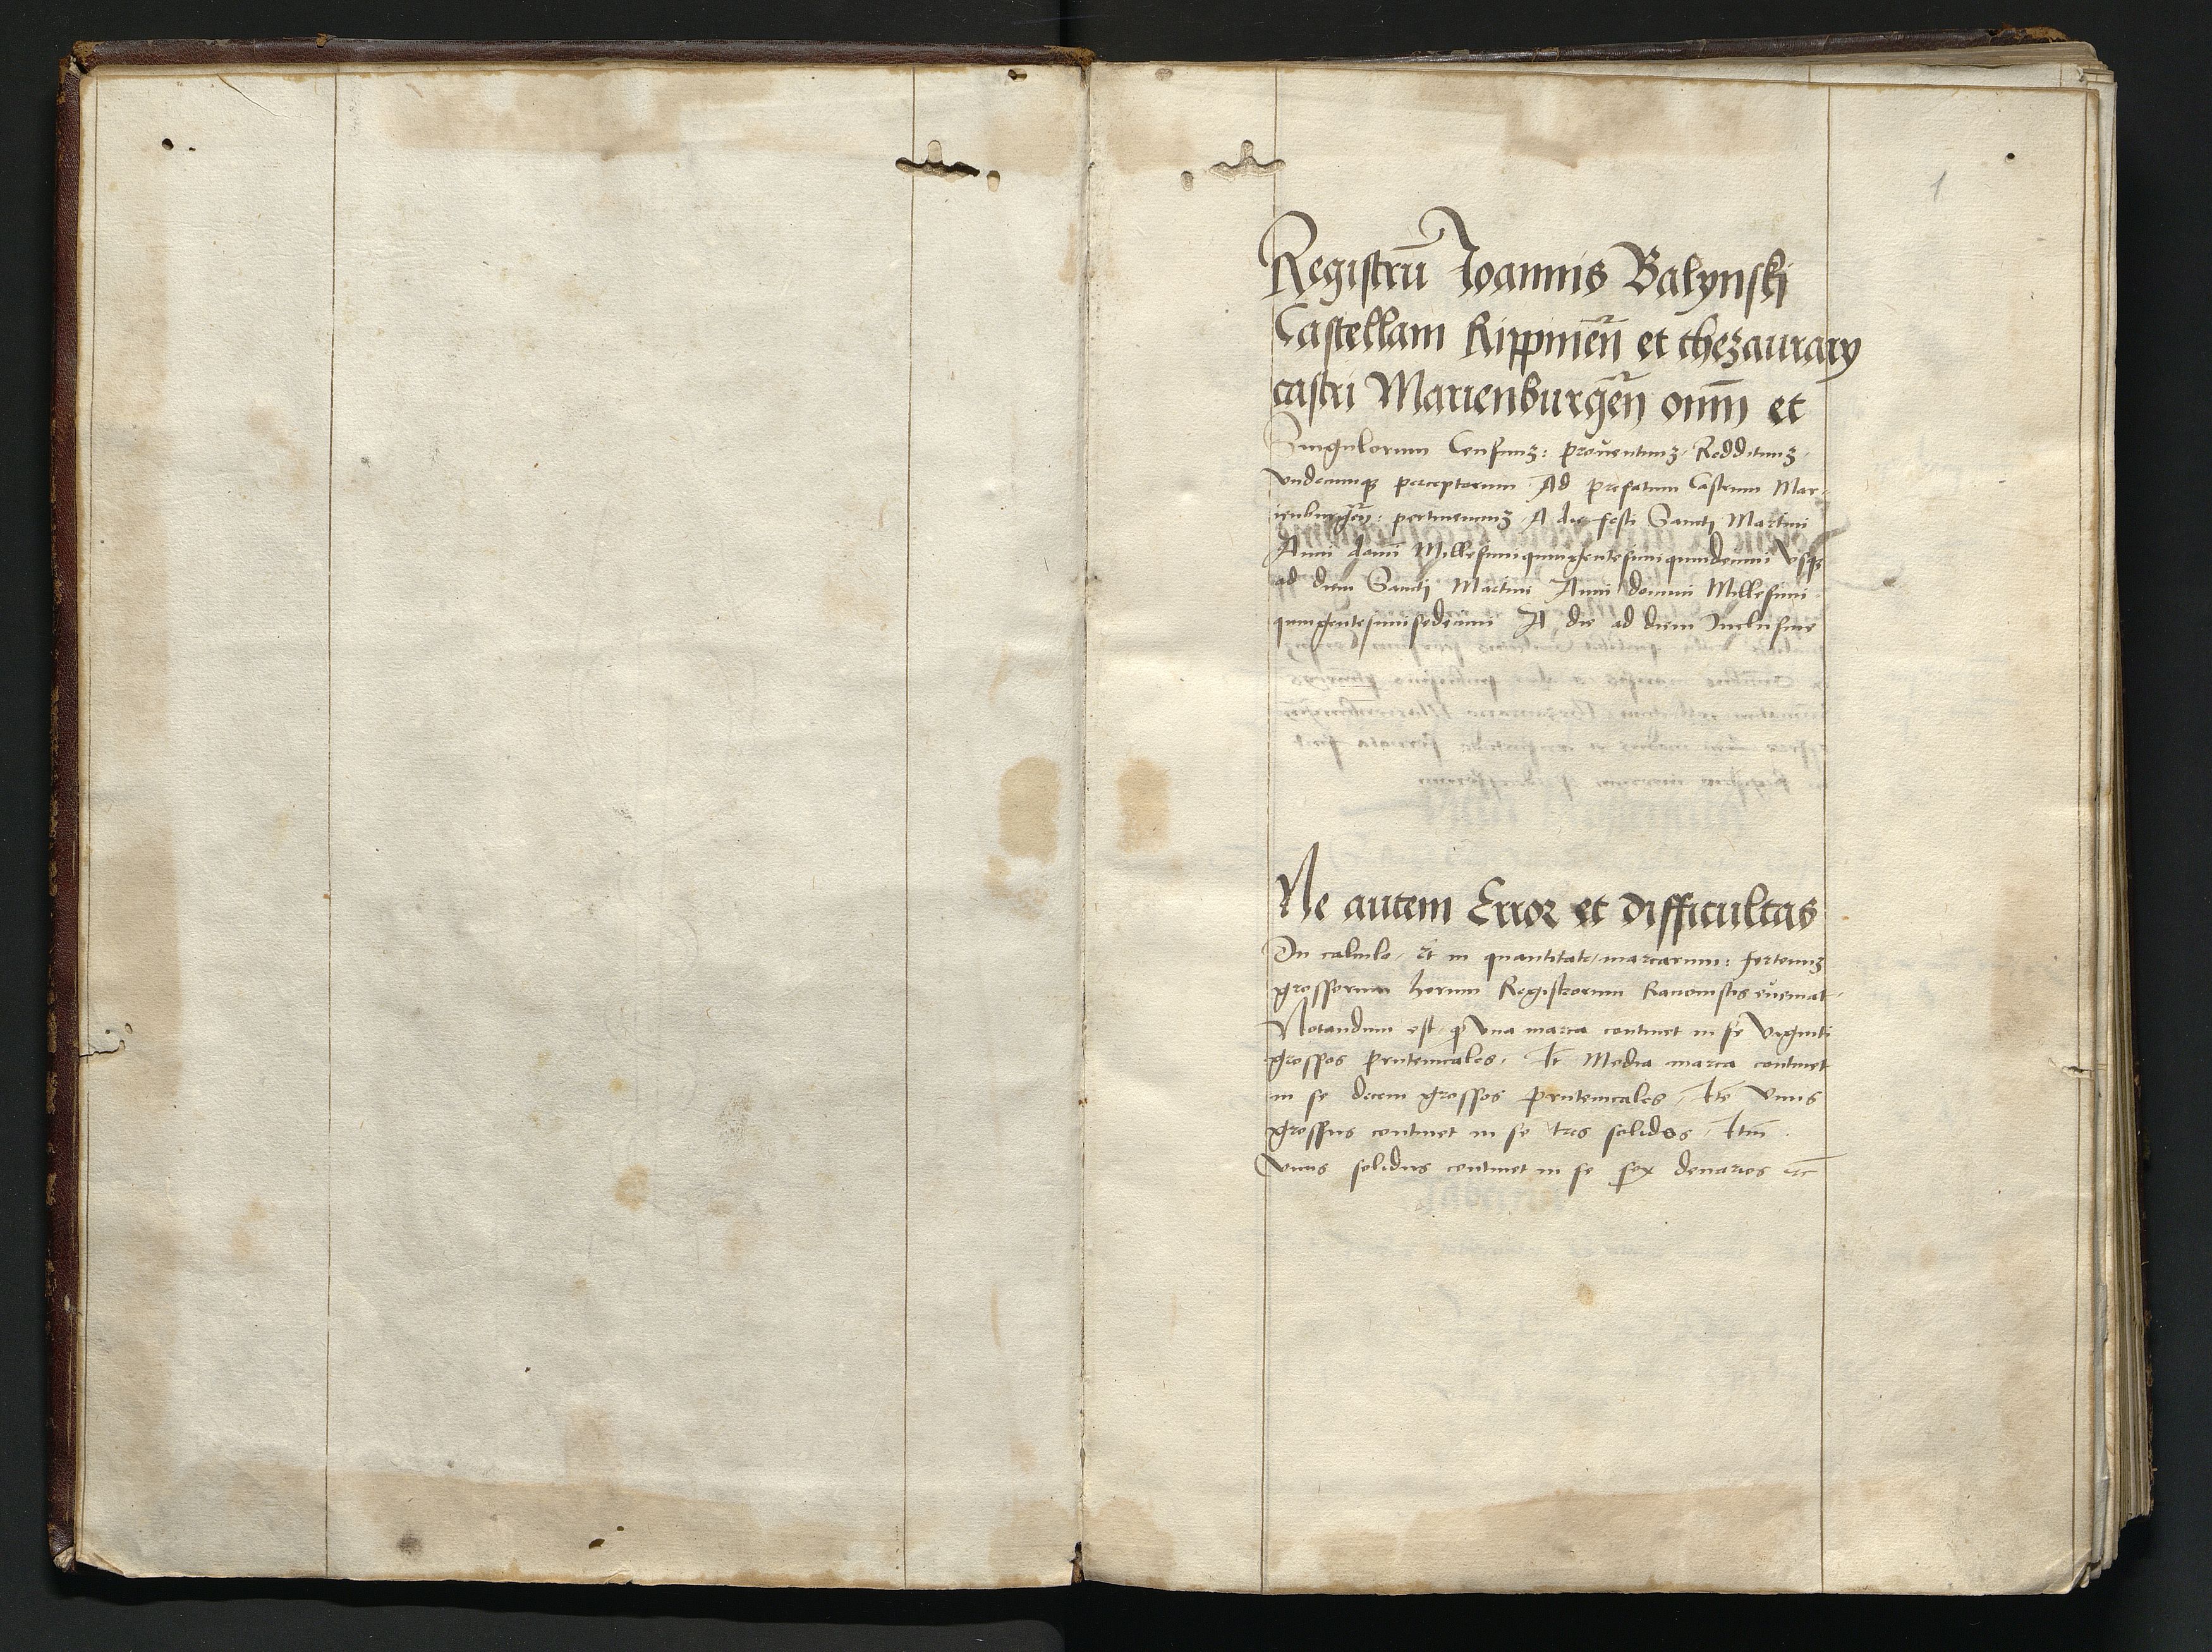 1
Registrū Joannis Balynskj
Castellani Rippinēn̄ et thezaurarÿ
castri Marienburgēn̄ om̄ni et
Singulorum Censuuꝫ: proventuuꝫ Reddituuꝫ
vndecumqꝫ perceptorum Ad prefatum Castrum Mar-
ienburgēn̄: pertinenciuꝫ A die festi Sancti Martini
Anni domi̅ Millesimiquingentesimiquindecimi Vsqꝫ
ad diem Sanctj Martini Anni domini Millesimi
quingentesimisedecimi A die ad diem Inclusiue
Ne autem Error et difficultas
In calculo, Et in quantitate marcarum: fertonuꝫ
grossorum horum Registrorum Raconistis eveniat
Notandum est ꝙ Vna marca continet in se Viginti
grossos prutenicales. It̄ Media marca continet
in se decem grossos prutenicales, Itē Vnus
grossus continet in se tres solidos, Itm̄
Vnus solidus continet in se sex denarios ꝛc̄